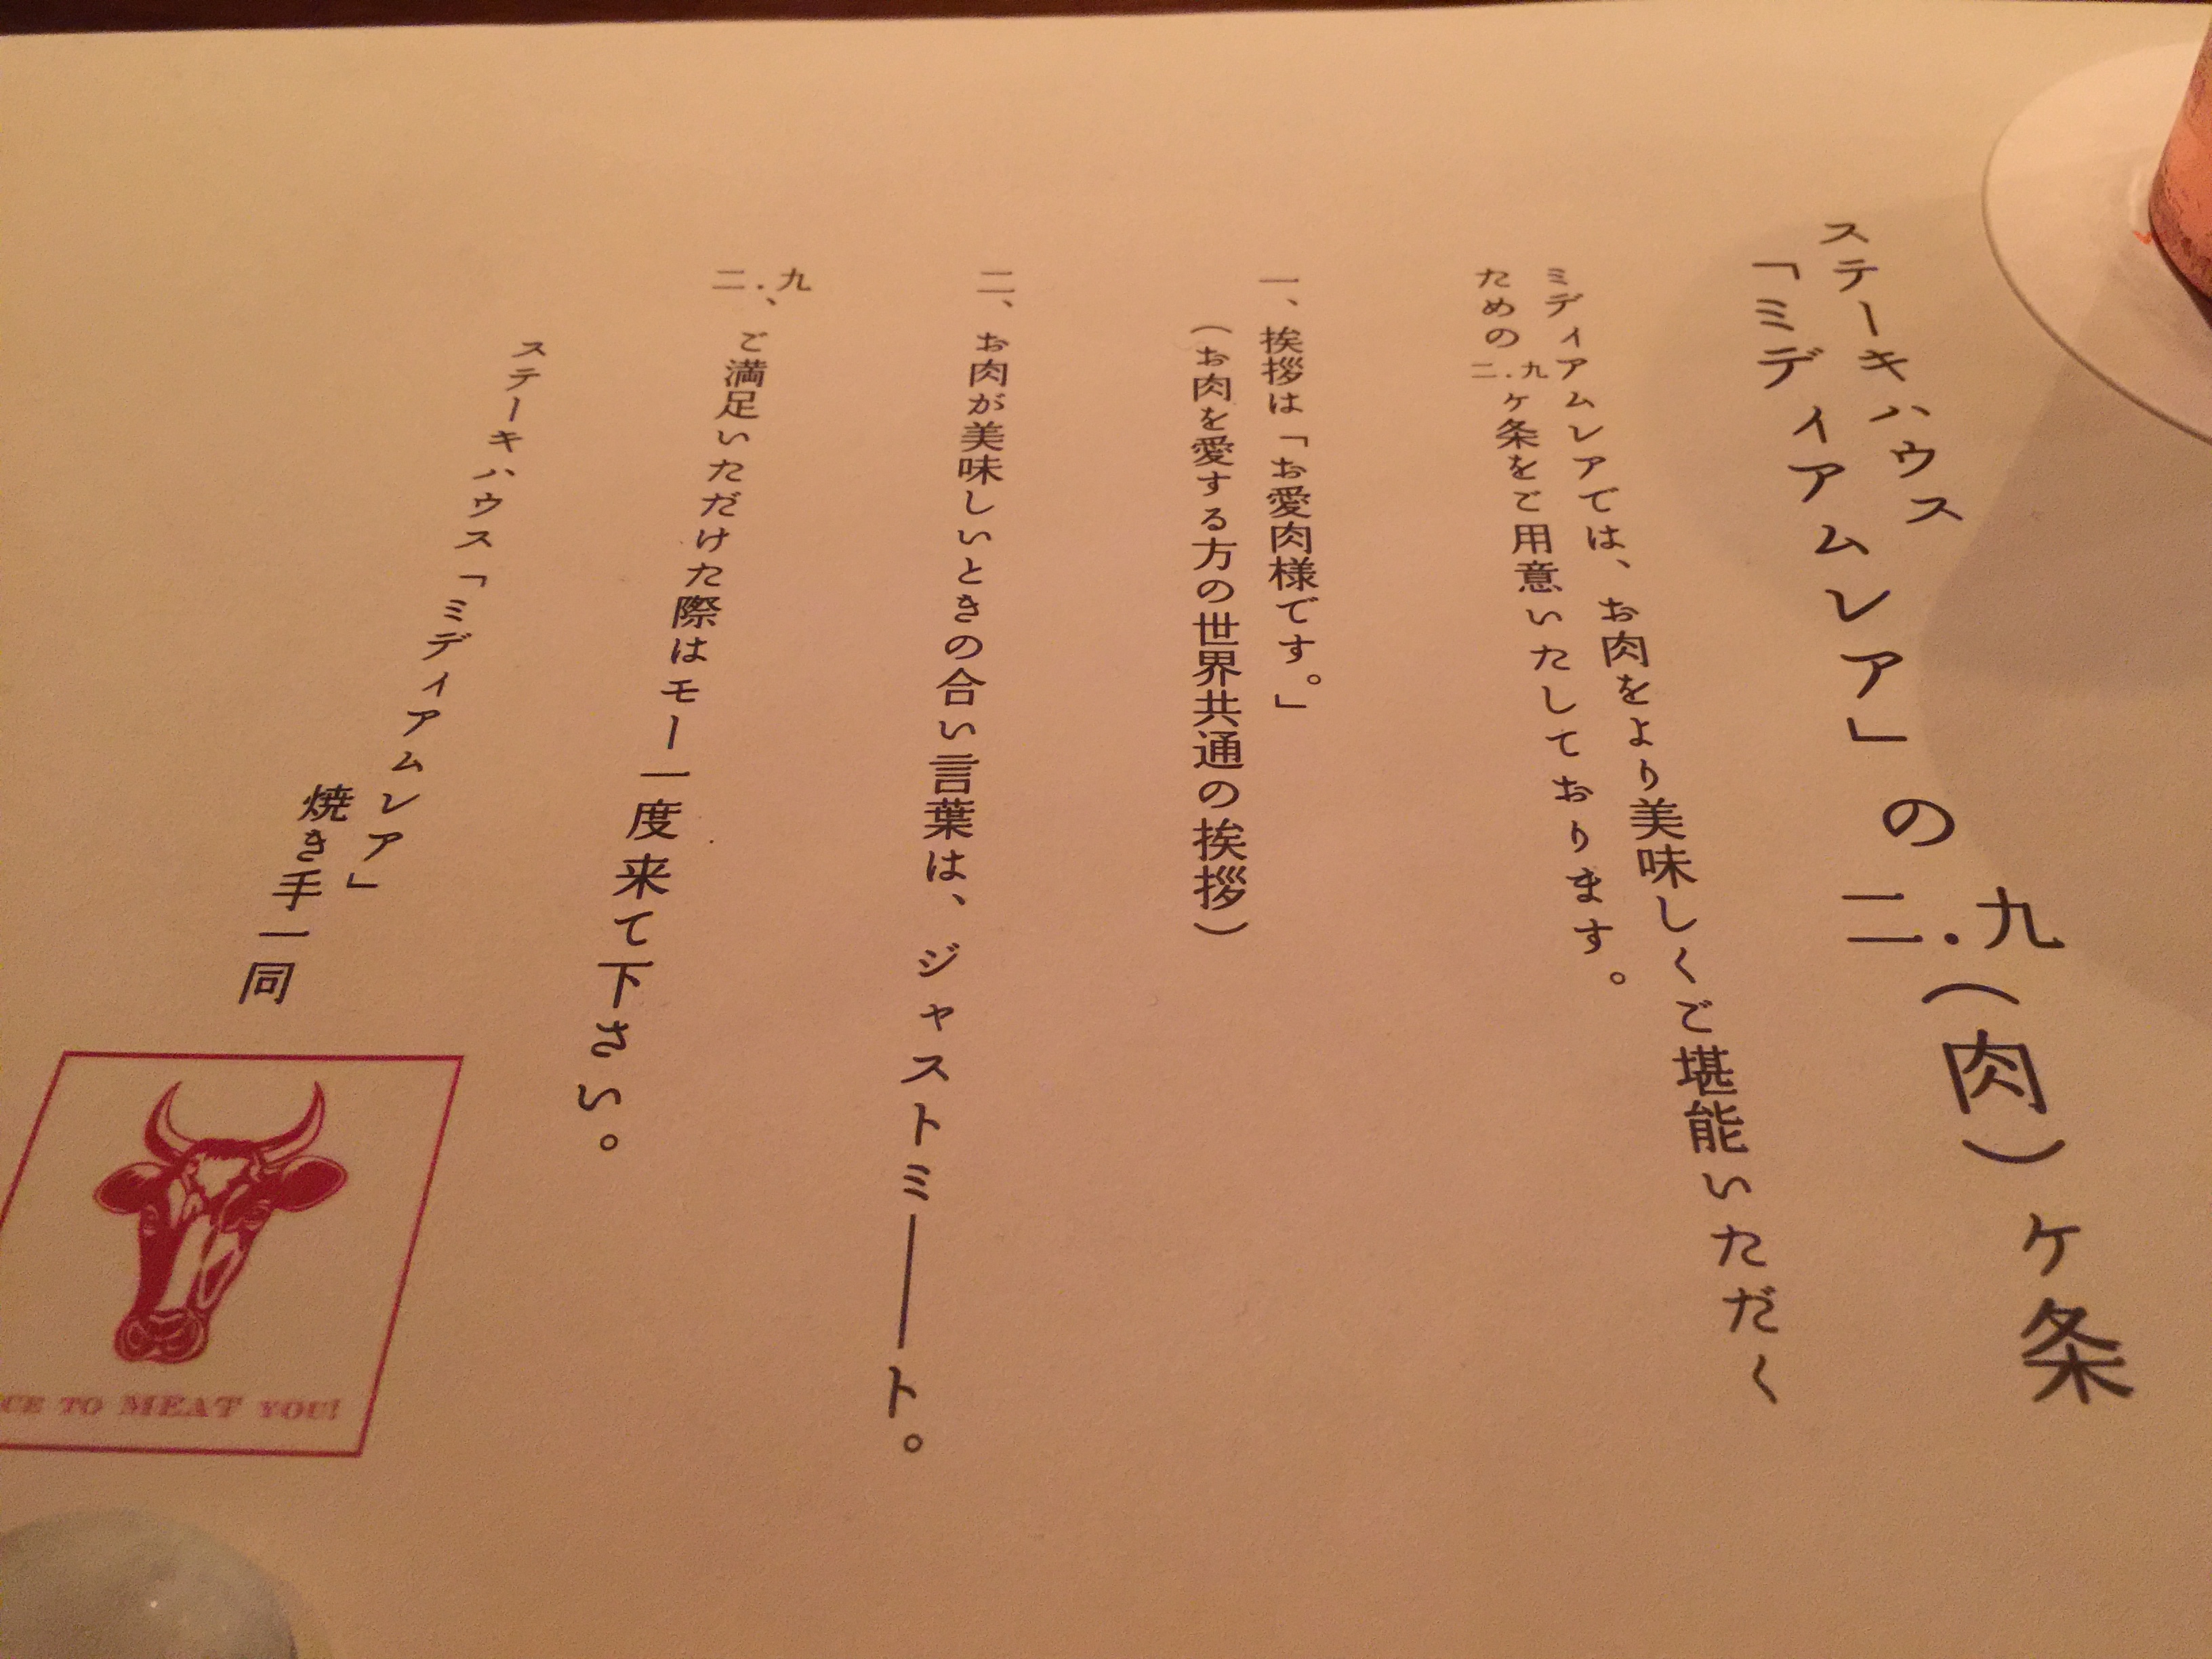 ステーキハウス
「ミディアムレア」の二.九(肉)ヶ条
ミディアムレアでは、お肉をより美味しくご堪能いただく
ための二.九ヶ条をご用意いたしております。
一、挨拶は「お愛肉様です。」
(お肉を愛する方の世界共通の挨拶)
二、お肉が美味しいときの合い言葉は、ジャストミーート。
二.九、ご満足いただけた際はモー一度来て下さい。
ステーキハウス「ミディアムレア」
焼き手一同
TO MEAT YOU!